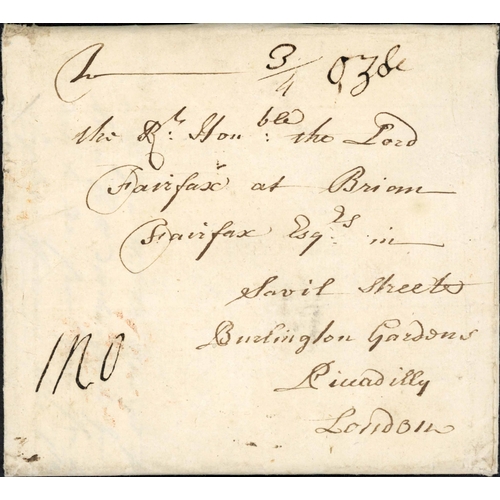 To 3/4 oz
the Rt. Honble: the Lord
Fairfax at Brian
Fairfax Esqrs in
Savil Streete
Burlington Gardens
Piccadilly
London